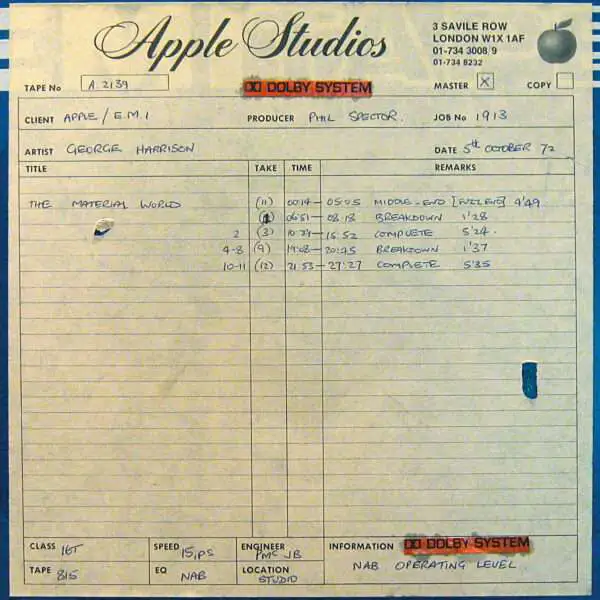 Apple Studios
3 SAVILE ROW
LONDON W1X 1AF
01-734 3008/9
01-734 8232
TAPE No A.2139 DOLBY SYSTEM MASTER X COPY
CLIENT APPLE / E.M.I PRODUCER PHIL SPECTOR. JOB No 1913
ARTIST GEORGE HARRISON DATE 5th OCTOBER 72
TITLE TAKE TIME REMARKS
THE MATERIAL WORLD (11) 00:14 – 05:05 MIDDLE-END [FULL END] 4'49
06:51 – 08:18 BREAKDOWN 1'28
2 (3) 10:27 – 15:52 COMPLETE 5'24.
4-8 (9) 19:08 – 20:45 BREAKDOWN 1'37
10-11 (12) 21:53 – 27:27 COMPLETE 5'35
CLASS 16T SPEED 15 IPS ENGINEER PMC JB INFORMATION DOLBY SYSTEM
TAPE 815 EQ NAB LOCATION STUDIO NAB OPERATING LEVEL.